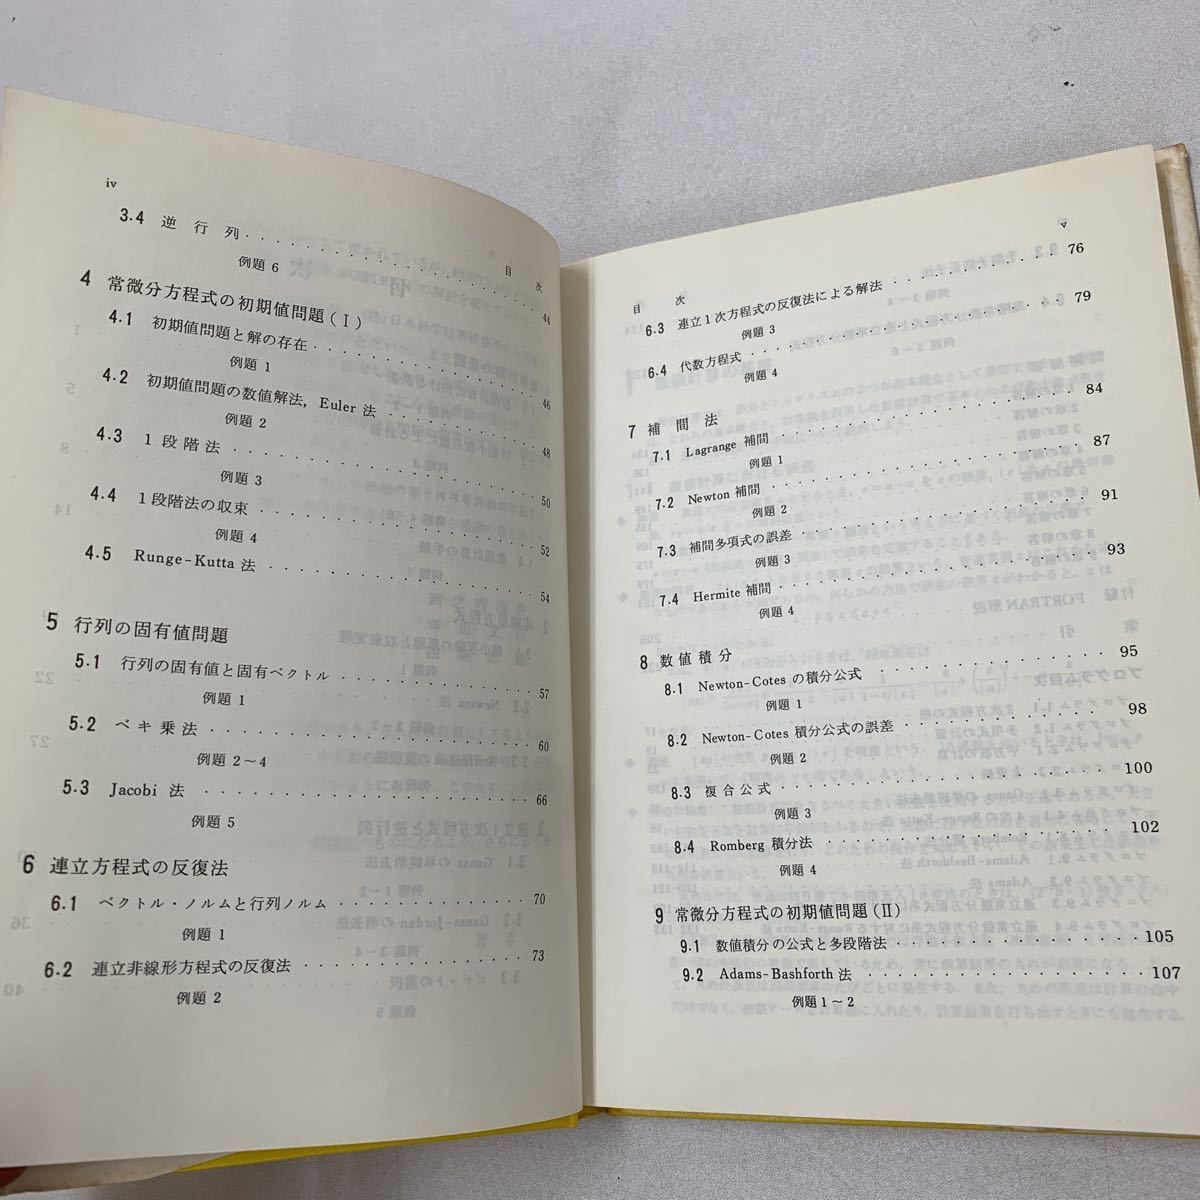 iv
目 次
3.4 逆 行 列 44
例題 6
4 常微分方程式の初期値問題(I)
4.1 初期値問題と解の存在 46
例題 1
4.2 初期値問題の数値解法, Euler 法 48
例題 2
4.3 1 段 階 法 50
例題 3
4.4 1段階法の収束 52
例題 4
4.5 Runge-Kutta 法 54
5 行列の固有値問題
5.1 行列の固有値と固有ベクトル 57
例題 1
5.2 ベ キ 乗 法 60
例題 2〜4
5.3 Jacobi 法 66
例題 5
6 連立方程式の反復法
6.1 ベクトル・ノルムと行列ノルム 70
例題 1
6.2 連立非線形方程式の反復法 73
例題 2
v
目 次
6.3 連立1次方程式の反復法による解法 76
例題 3
6.4 代数方程式 79
例題 4
7 補 間 法
7.1 Lagrange 補間 84
例題 1
7.2 Newton 補間 87
例題 2
7.3 補間多項式の誤差 91
例題 3
7.4 Hermite 補間 93
例題 4
8 数 値 積 分
8.1 Newton-Cotes の積分公式 95
例題 1
8.2 Newton-Cotes 積分公式の誤差 98
例題 2
8.3 複 合 公 式 100
例題 3
8.4 Romberg 積分法 102
例題 4
9 常微分方程式の初期値問題(II)
9.1 数値積分の公式と多段階法 105
9.2 Adams-Bashforth 法 107
例題 1〜2